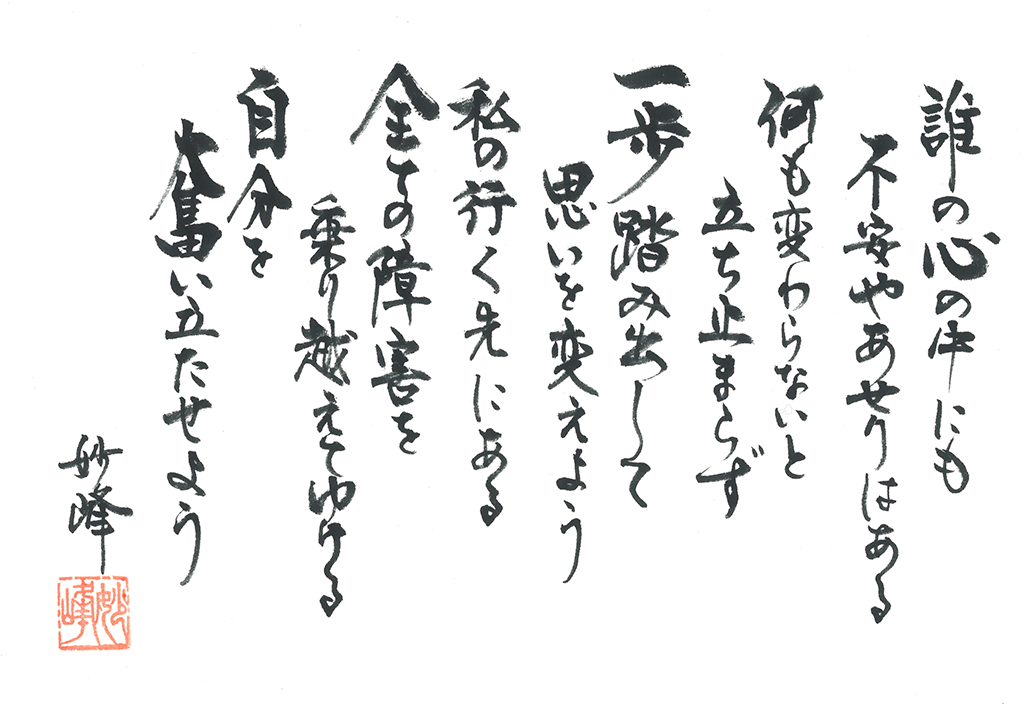 誰の心の中にも
不安やあせりはある
何も変わらないと
立ち止まらず
一歩踏み出して
思いを変えよう
私の行く先にある
全ての障害を
乗り越えてゆける
自分を
奮い立たせよう
妙峰
妙峰